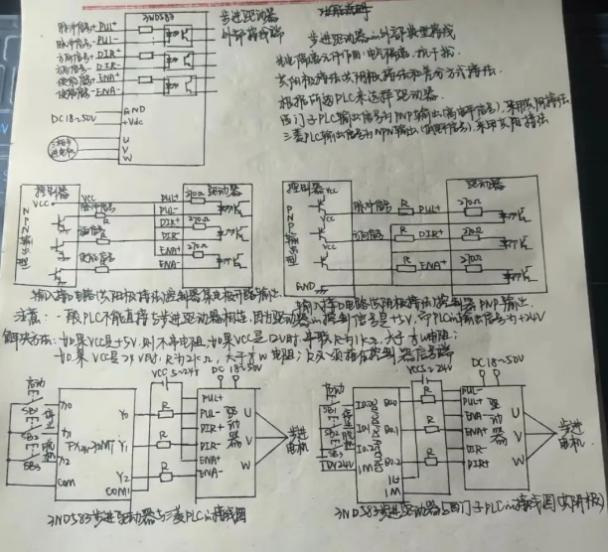 3ND583
步进驱动器
外部接线路
脉冲信号+ PUL+
脉冲信号- PUL-
方向信号+ DIR+
方向信号- DIR-
使能信号+ ENA+
使能信号- ENA-
DC18~50V
GND
+Vdc
U
V
W
步进驱动器的外部典型接线
根据所选PLC来选择驱动器.
西门子PLC输出信号为PNP输出(高电平信号),采用共阴接法
三菱PLC输出信号为NPN输出(低电平信号),采用共阳接法
控制器
VCC
VCC
脉冲信号
R
PUL+
PUL-
DIR+
DIR-
ENA+
ENA-
270Ω
270Ω
270Ω
驱动器
控制器
VCC
VCC
VCC
PNP输出型
GND
脉冲信号
方向信号
R
R
R
PUL+
DIR+
ENA+
270Ω
270Ω
270Ω
驱动器
输入接口电路(共阳极接法)控制器集电极开路输出.
输入接口电路(共阴极接法)控制器PNP输出.
注意:一般PLC不能直接与步进驱动器相连,因为驱动器的控制信号是+5V,而PLC的输出信号为+24V
解决方法:如果VCC是+5V,则不串电阻,如果VCC是12V时,串联R为1KΩ,大于
如果VCC是24V时,R为2KΩ,大于
VCC 5~24V
DC18~50V
启动
SB1
SB2
SB3
X0
X1
X2
COM
Y0
Y1
Y2
COM1
R
R
R
PUL+
PUL-
DIR+
DIR-
ENA+
ENA-
驱动器
U
V
W
步进电机
VCC 5~24V
DC18~50V
启动
SB1
SB2
SB3
DV24V
I0.0
I0.1
I0.2
1M
Q0.0
Q0.1
Q0.2
1L
1M
R
R
R
PUL-
PUL+
ENA-
ENA+
DIR-
DIR+
驱动器
U
V
W
步进电机
3ND583步进驱动器与三菱PLC的接线图
3ND583步进驱动器与西门子PLC的接线图(共阴极)